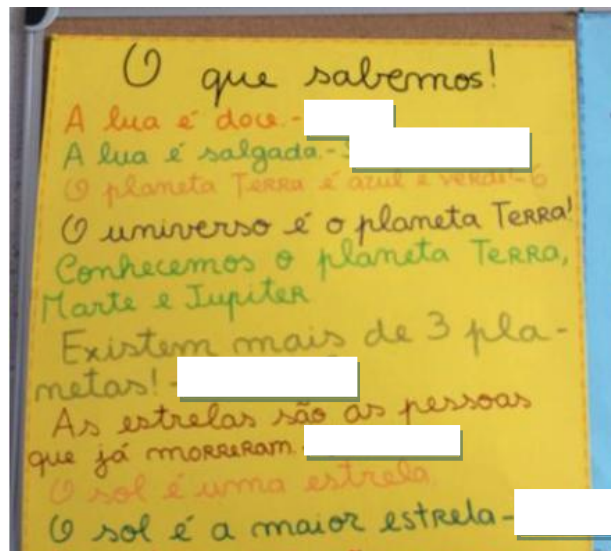 O que sabemos!
A lua é doce.-
A lua é salgada.-
O planeta Terra é azul e verde!-6
O universo é o planeta Terra!
Conhecemos o planeta Terra,
Marte e Jupiter
Existem mais de 3 pla-
netas!-
As estrelas são as pessoas
que já morreram.
O sol é uma estrela
O sol é a maior estrela-